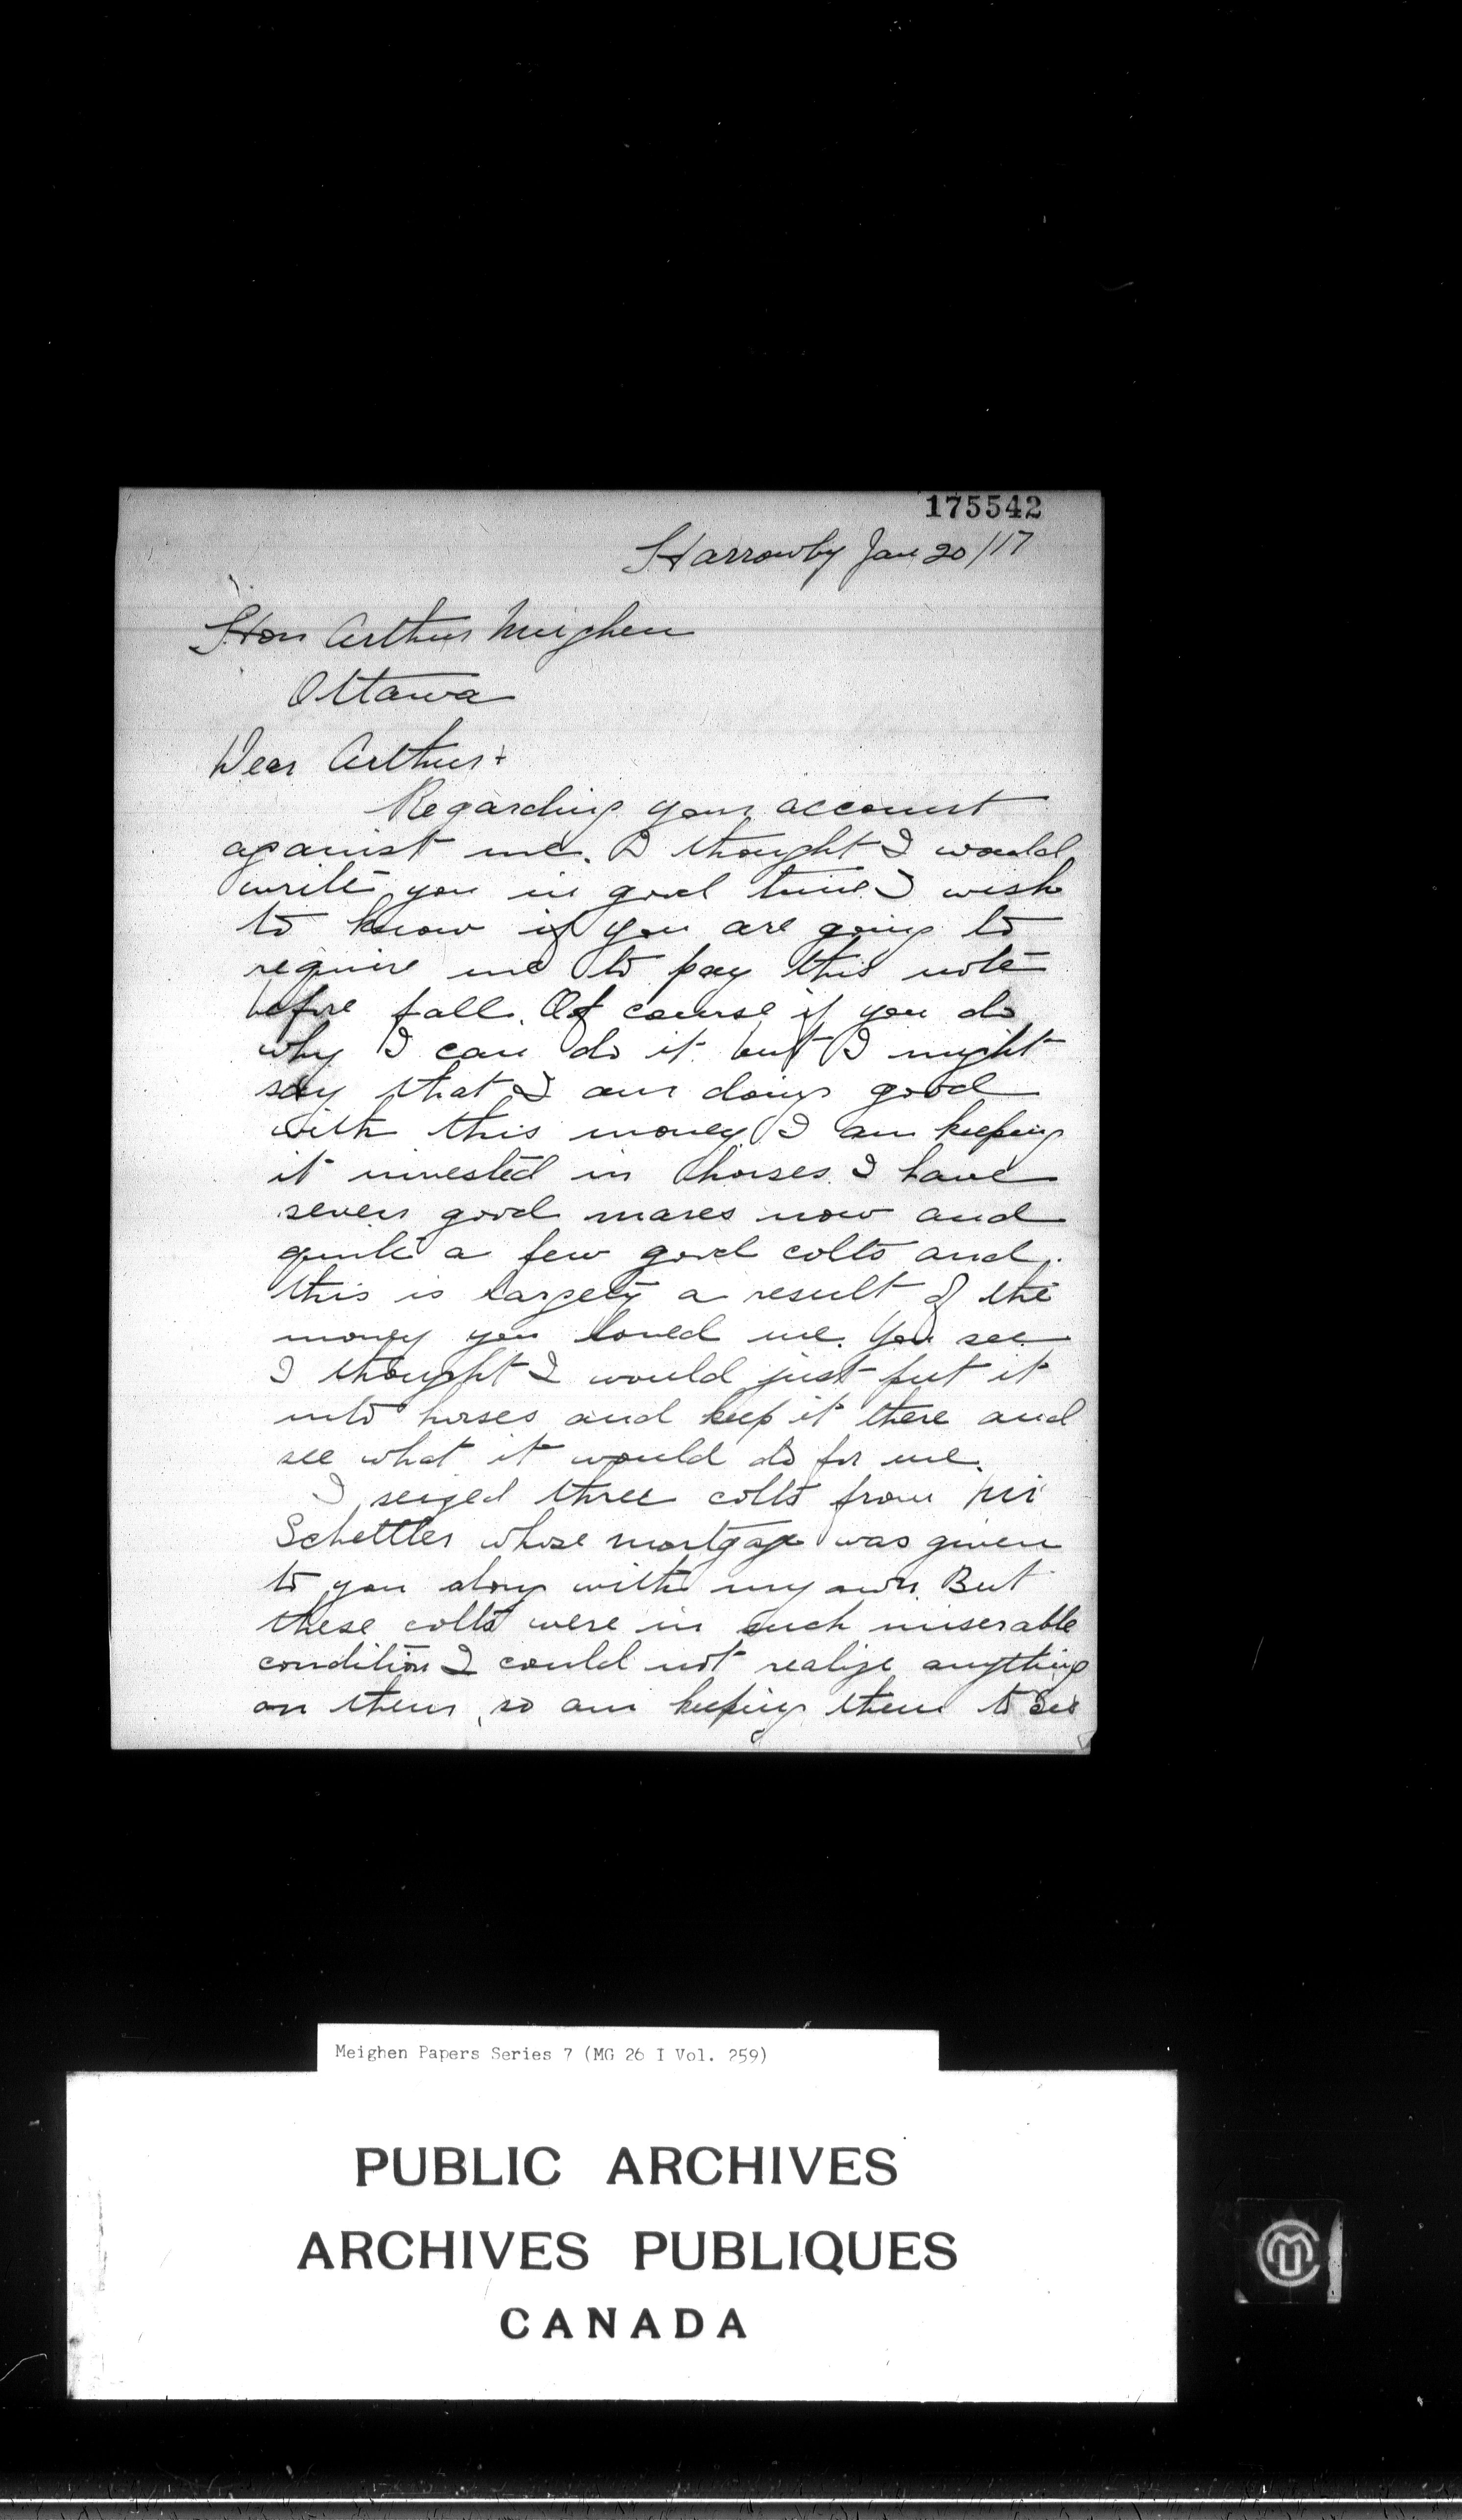 175542
Harrowby Jan 20/17
Hon Arthur Meighen
Ottawa
Dear Arthur
Regarding your account
against me. I thought I would
write you in good time I wish
to know if you are going to
require me to pay this note
before fall. Of course if you do
why I can do it but I might
say that I am doing good
with this money I am keeping
it invested in horses. I have
seven good mares now and
quite a few good colts and
this is largely a result of the
money you loned me. You see
I thought I would just put it
into horses and keep it there and
see what it would do for me.
I seized three colts from Mr
Schettler whose mortgage was given
to you along with my own. But
these colts were in such miserable
condition I could not realize anything
on them, so am keeping them to
Meighen Papers Series 7 (MG 26 I Vol. 259)
PUBLIC ARCHIVES
ARCHIVES PUBLIQUES
CANADA